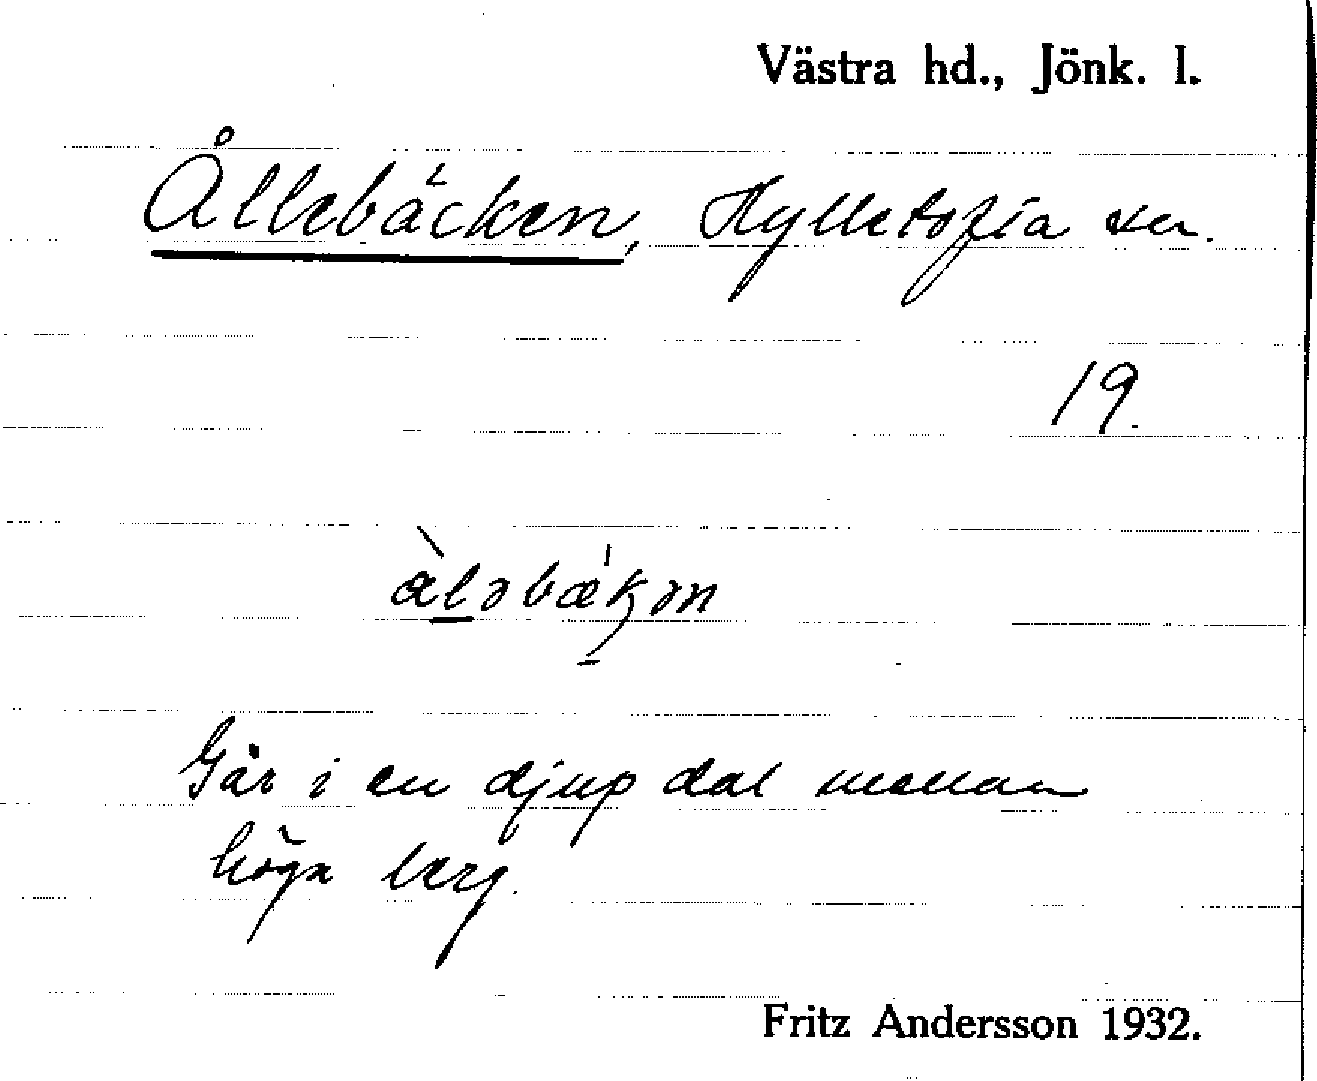 Västra hd., Jönk. l.
Ållebäcken, Hylletofta sn.
19.
àləbækən
Går i en djup dal mellan
höga berg.
Fritz Andersson 1932.